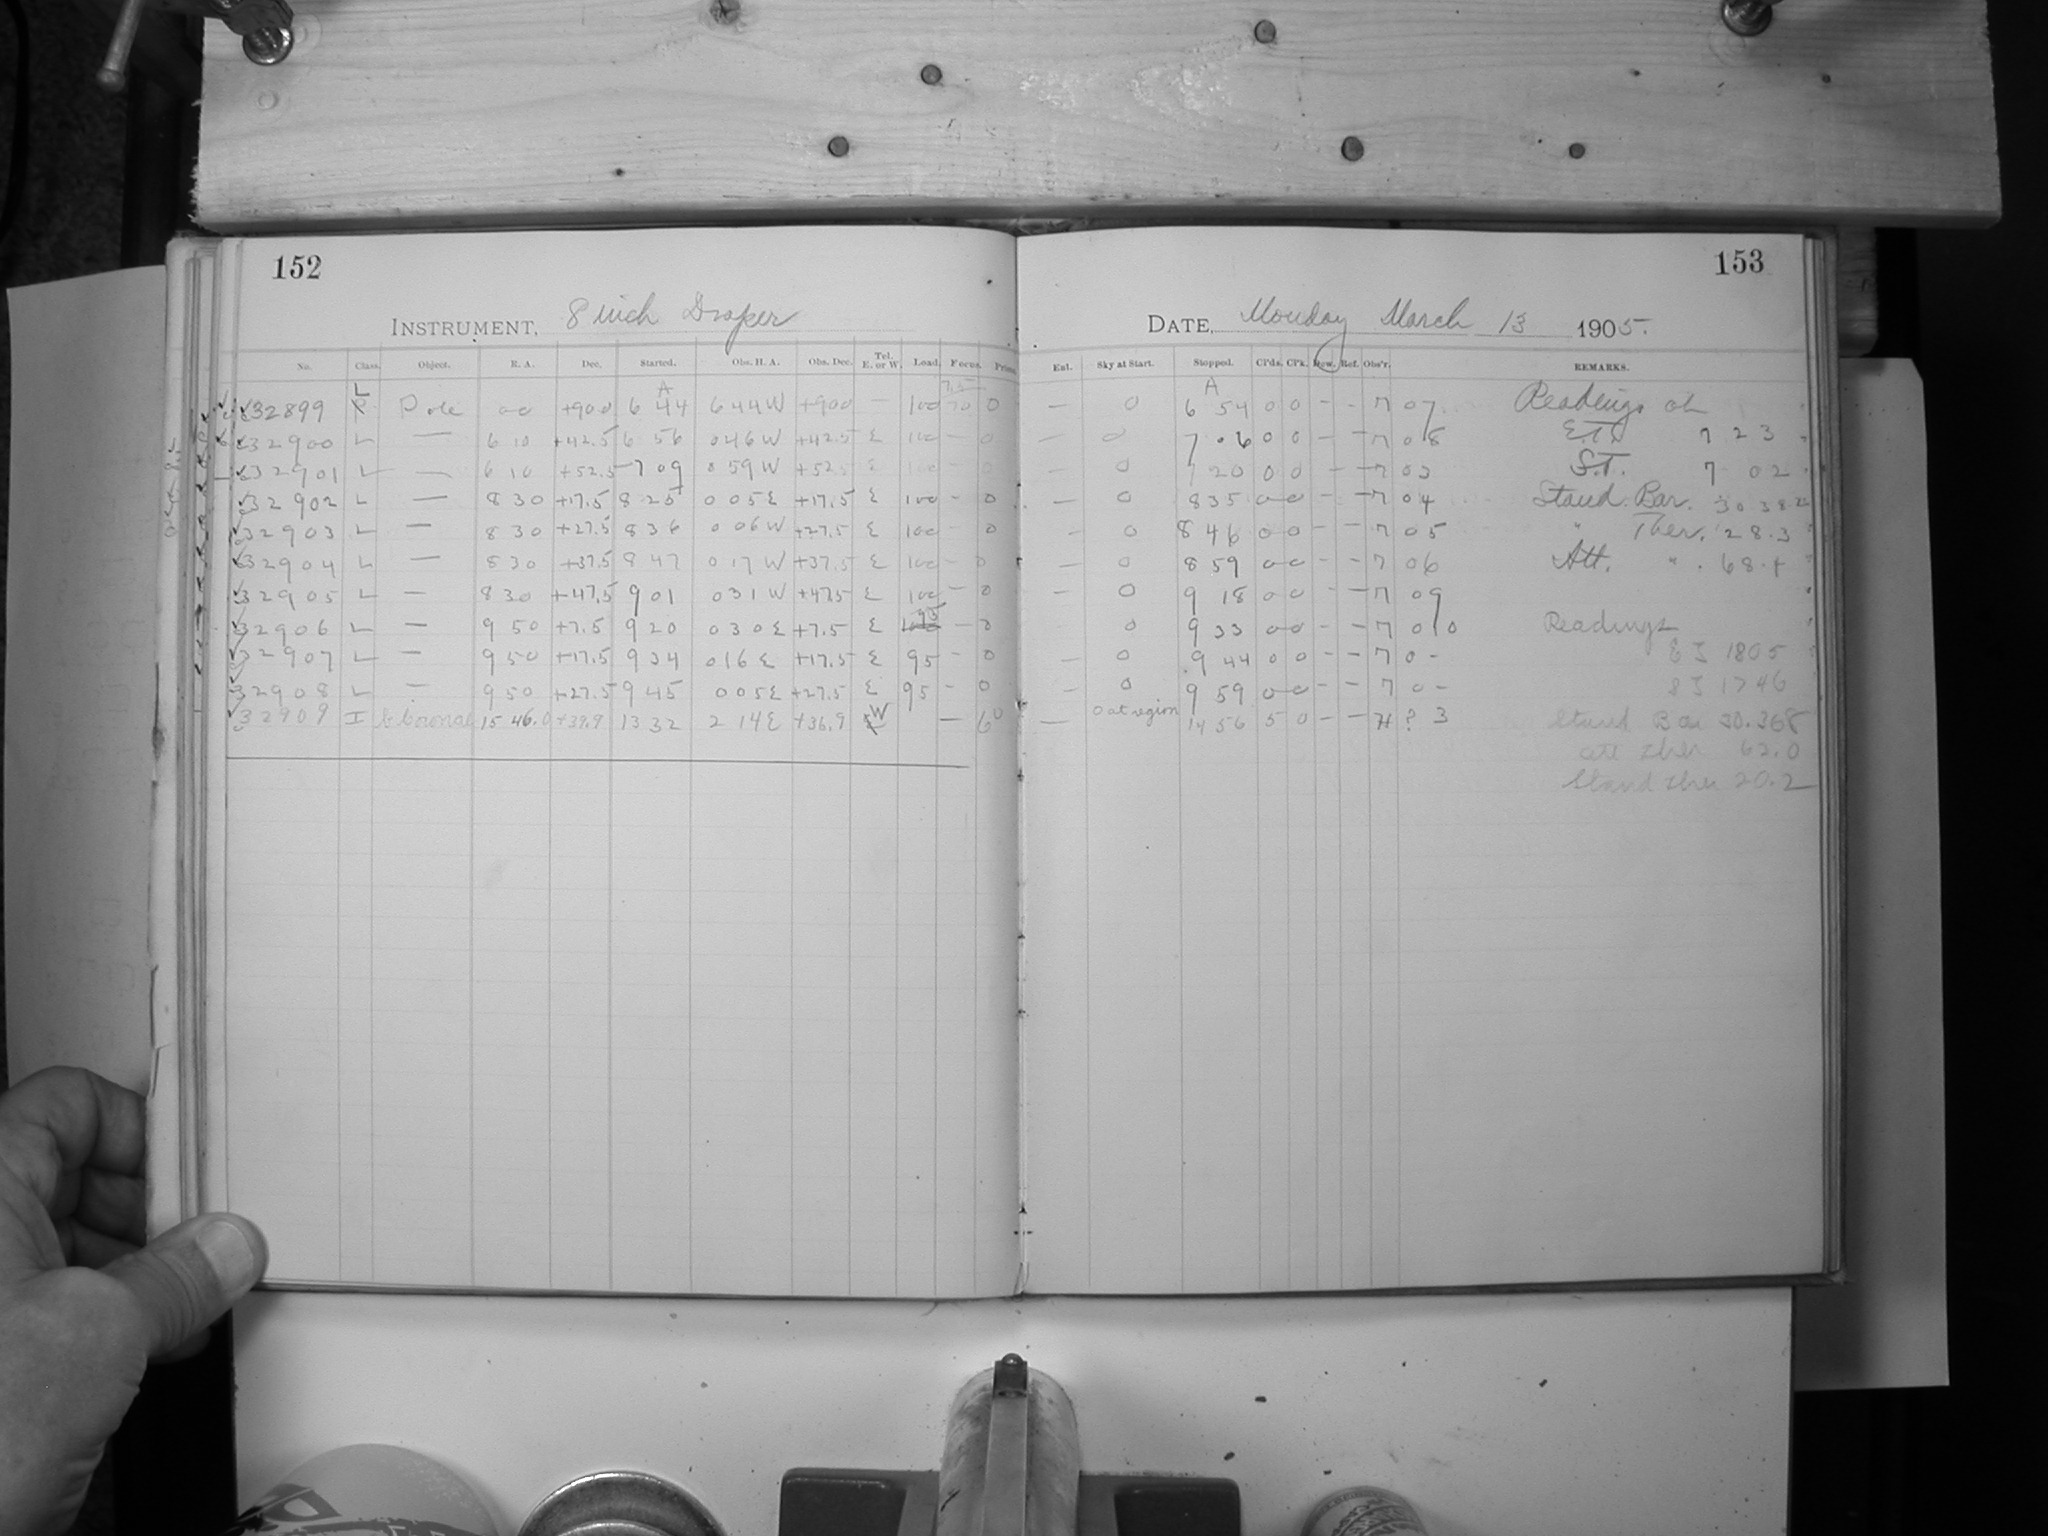 152
INSTRUMENT, 8 inch Draper
No. Class. Object. R. A. Dec. Started. Obs. H. A. Obs. Dec. Tel. E. or W. Load. Focus.
L A
32899 Pole 00 +900 6 44 6 44 W +900 — 100 0
32900 L — 6 10 +42.5 6 56 0 46 W +42.5 E 100 — 0
32901 L — 6 10 +52.5 7 09 0 59 W +52.5 E 100 — 0
32902 L — 8 30 +17.5 8 25 0 05 E +17.5 E 100 — 0
32903 L — 8 30 +27.5 8 36 0 06 W +27.5 E 100 0
32904 L — 8 30 +37.5 8 47 0 17 W +37.5 E 100 — 0
32905 L — 8 30 +47.5 9 01 0 31 W +47.5 E 100 — 0
32906 L — 9 50 +7.5 9 20 0 30 E +7.5 E 95 — 0
32907 L — 9 50 +17.5 9 34 0 16 E +17.5 E 95 — 0
32908 L — 9 50 +27.5 9 45 0 05 E +27.5 E 95 — 0
32909 I 15 46.0 13 32 2 14 E +36.9 W —
153
DATE, Monday March 13 1905.
Enl. Sky at Start. Stopped. Cl'ds. Cl'k. Dew. Ref. Obs'r. REMARKS.
A
— 0 6 54 0 0 — — 7 07 Readings at
— 0 7 06 0 0 — — 7 08 7 23
— 0 7 20 0 0 — — 7 03 S.T. 7 02
— 0 8 35 0 0 — — 7 04 Stand. Bar.
0 8 46 0 0 — — 7 05 " Ther. 28.3
0 8 59 0 0 — — 7 06 Att. " .
— 0 9 18 0 0 — — 7 09
0 9 33 0 0 — — 7 010 Readings
— 0 9 44 0 0 — — 7 0 — 1805
— 0 9 59 0 0 — — 7 0 — 1746
— 0 at region 14 56 5 0 — — H ? 3 Stand Bar 30.368
att ther 62.0
Stand ther 20.2